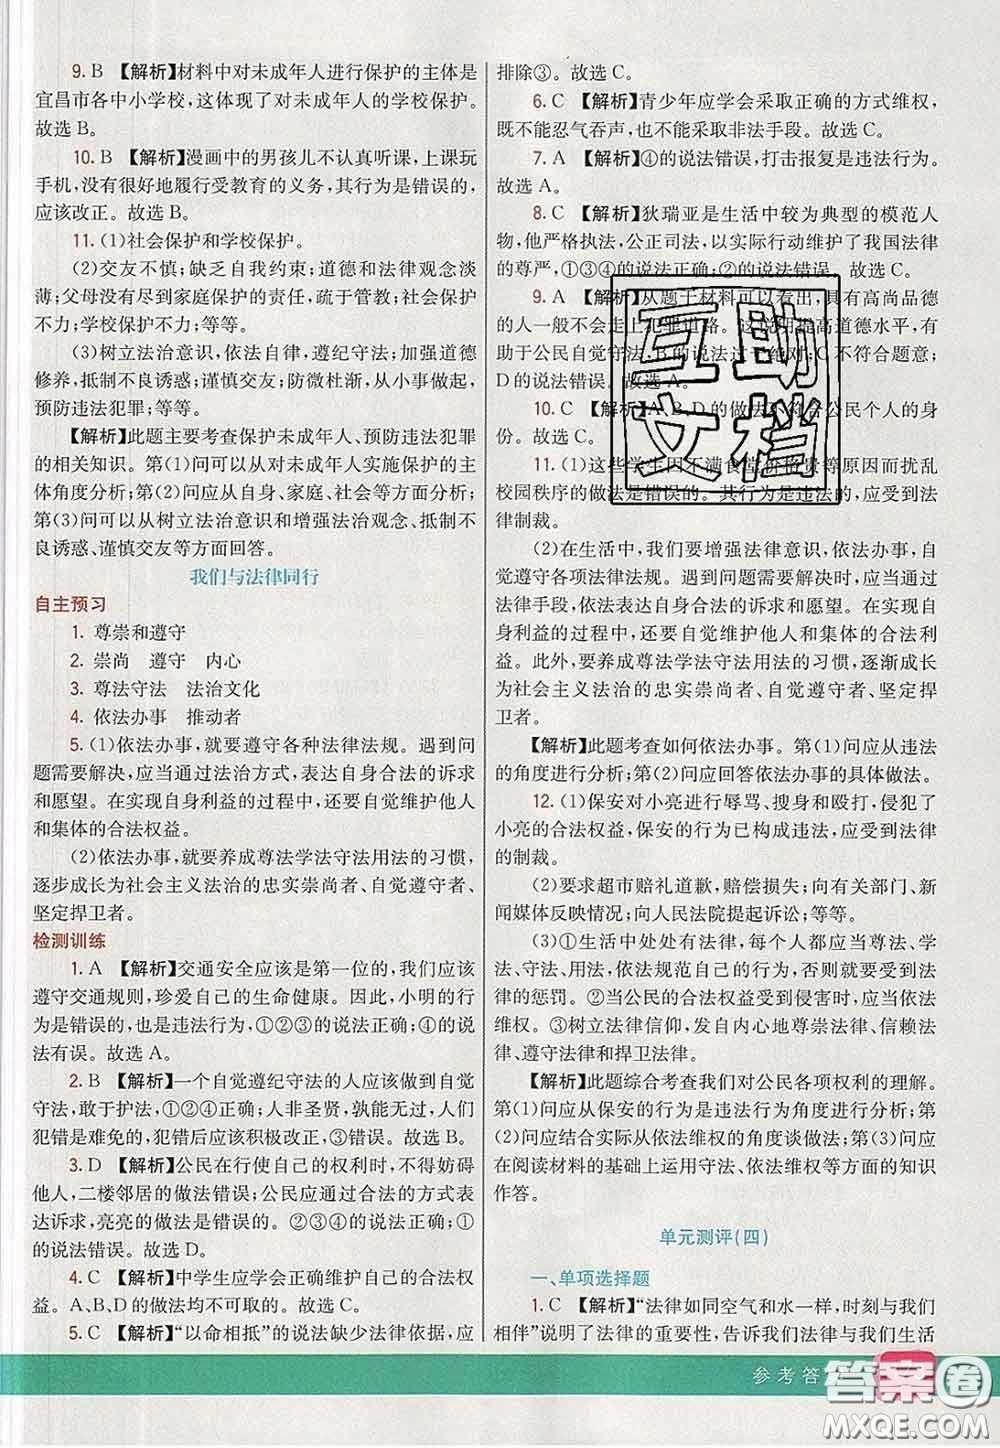 9. B 【解析】材料中对未成年人进行保护的主体是
宜昌市各中小学校,这体现了对未成年人的学校保护。
故选 B。
10. B 【解析】漫画中的男孩儿不认真听课,上课玩
手机,没有很好地履行受教育的义务,其行为是错误的,
应该改正。故选 B。
11. (1)社会保护和学校保护。
(2)交友不慎;缺乏自我约束;道德和法律观念淡
薄;父母没有尽到家庭保护的责任,疏于管教;社会保护
不力;学校保护不力;等等。
(3)树立法治意识,依法自律,遵纪守法;加强道德
修养,抵制不良诱惑;谨慎交友;防微杜渐,从小事做起,
预防违法犯罪;等等。
【解析】此题主要考查保护未成年人、预防违法犯罪
的相关知识。第(1)问可以从对未成年人实施保护的主
体角度分析;第(2)问应从自身、家庭、社会等方面分析;
第(3)问可以从树立法治意识和增强法治观念、抵制不
良诱惑、谨慎交友等方面回答。
我们与法律同行
自主预习
1. 尊崇和遵守
2. 崇尚 遵守 内心
3. 尊法守法 法治文化
4. 依法办事 推动者
5. (1)依法办事,就要遵守各种法律法规。遇到问
题需要解决时,应当通过法治方式,表达自身合法的诉求
和愿望。在实现自身利益的过程中,还要自觉维护他人
和集体的合法权益。
(2)依法办事,就要养成尊法学法守法用法的习惯,
逐步成长为社会主义法治的忠实崇尚者、自觉遵守者、
坚定捍卫者。
检测训练
1. A 【解析】交通安全应该是第一位的,我们应该
遵守交通规则,珍爱自己的生命健康。因此,小明的行
为是错误的,也是违法行为,①②③的说法正确;④的说
法有误。故选 A。
2. B 【解析】一个自觉遵纪守法的人应该做到自觉
守法,敢于护法,①②④正确;人非圣贤,孰能无过,我们
犯错是难免的,犯错后应该积极改正,③错误。故选 B。
3. D 【解析】公民在行使自己的权利时,不得妨碍
他人,二楼邻居的做法错误;公民应通过合法的方式表
达诉求,亮亮的做法是错误的。②③④的说法正确;①
的说法错误。故选 D。
4. C 【解析】中学生应学会正确维护自己的合法权
益。A、B、D 的做法均不可取的。故选 C。
5. C 【解析】“以命相抵”的说法缺少法律依据,应
排除③。故选 C。
6. C 【解析】青少年应学会采取正确的方式维权,
既不能忍气吞声,也不能采取非法手段。故选 C。
7. A 【解析】④的说法错误,打击报复是违法行为。
故选 A。
8. C 【解析】狄瑞亚是生活中较为典型的模范人
物,他严格执法,公正司法,以实际行动维护了我国法律
的尊严,①③④的说法正确;②的说法错误。故选 C。
9. A 【解析】从题干材料可以看出,具有高尚品德
的人一般不会走上犯罪道路。这说明提高道德水平,有
助于公民自觉守法;B 的说法过于绝对;C 不符合题意;
D 的说法错误。故选 A。
10. C 【解析】A、B、D 的做法不符合公民个人的身
份。故选 C。
11. (1)这些学生因不满食堂价格贵等原因而扰乱
校园秩序的做法是错误的。其行为是违法的,应受到法
律制裁。
(2)在生活中,我们要增强法律意识,依法办事,自
觉遵守各项法律法规。遇到问题需要解决时,应当通过
法律手段,依法表达自身合法的诉求和愿望。在实现自
身利益的过程中,还要自觉维护他人和集体的合法利
益。此外,要养成尊法学法守法用法的习惯,逐步成长
为社会主义法治的忠实崇尚者、自觉遵守者、坚定捍
卫者。
【解析】此题考查如何依法办事。第(1)问应从违法
的角度进行分析;第(2)问应回答依法办事的具体做法。
12. (1)保安对小亮进行辱骂、搜身和殴打,侵犯了
小亮的合法权益,保安的行为已构成违法,应受到法律
的制裁。
(2)要求超市赔礼道歉,赔偿损失;向有关部门、新
闻媒体反映情况;向人民法院提起诉讼;等等。
(3)①生活中处处有法律,每个人都应当尊法、学
法、守法、用法,依法规范自己的行为,否则就会受到法
律的惩罚。②当公民的合法权益受到侵害时,应当依法
维权。③树立法律信仰,发自内心地尊崇法律、信赖法
律、遵守法律和捍卫法律。
【解析】此题综合考查我们对公民各项权利的理解。
第(1)问应从保安的行为是违法行为角度进行分析;第
(2)问应结合实际从依法维权的角度谈做法;第(3)问应
在阅读材料的基础上运用守法、依法维权等方面的知识
作答。
单元测评(四)
一、单项选择题
1. C 【解析】“法律如同空气和水一样,时刻与我们
相伴”说明了法律的重要性,告诉我们法律与我们生活
互助
文档
参考答
答案圈
MXQE.COM